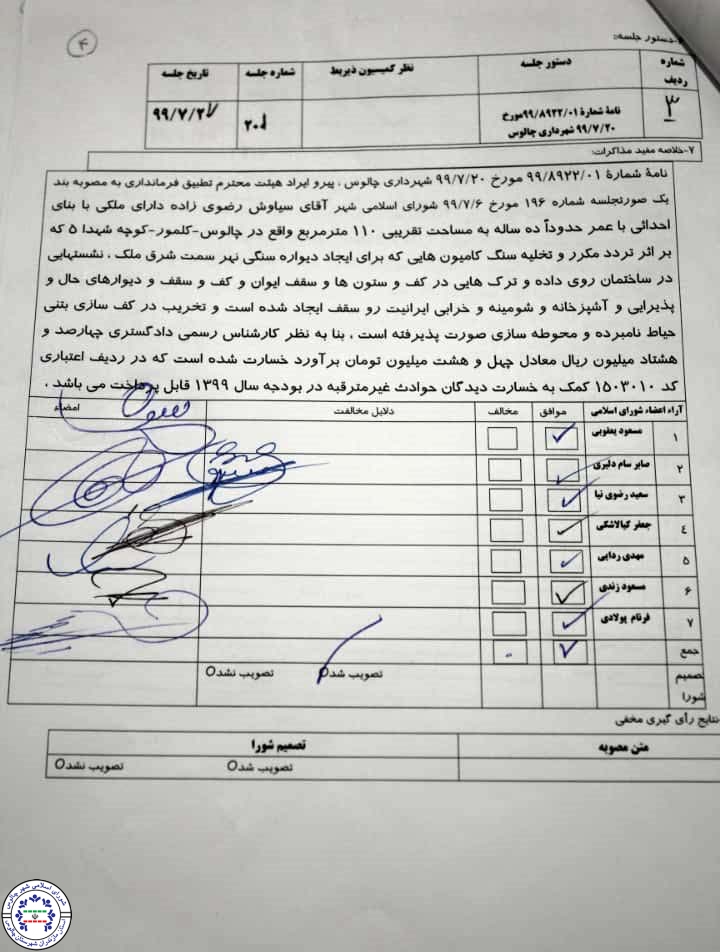 ۴
۶-دستور جلسه:
شماره ردیف	دستور جلسه	نظر کمیسیون ذیربط	شماره جلسه	تاریخ جلسه
۳	نامهٔ شمارهٔ ۹۹/۸۹۲۲/۰۱مورخ ۹۹/۷/۲۰ شهرداری چالوس		۲۰۱	۹۹/۷/۲۷
۷-خلاصه مفید مذاکرات:
نامهٔ شمارهٔ ۹۹/۸۹۲۲/۰۱ مورخ ۹۹/۷/۲۰ شهرداری چالوس ، پیرو ایراد هیئت محترم تطبیق فرمانداری به مصوبه بند
یک صورتجلسه شماره ۱۹۶ مورخ ۹۹/۷/۶ شورای اسلامی شهر آقای سیاوش رضوی زاده دارای ملکی با بنای
احداثی با عمر حدوداً ده ساله به مساحت تقریبی ۱۱۰ مترمربع واقع در چالوس-کلمور-کوچه شهدا ۵ که
بر اثر تردد مکرر و تخلیه سنگ کامیون هایی که برای ایجاد دیواره سنگی نهر سمت شرق ملک ، نشستهایی
در ساختمان روی داده و ترک هایی در کف و ستون ها و سقف ایوان و کف و سقف و دیوارهای حال و
پذیرایی و آشپزخانه و شومینه و خرابی ایرانیت رو سقف ایجاد شده است و تخریب در کف سازی بتنی
حیاط نامبرده و محوطه سازی صورت پذیرفته است ، بنا به نظر کارشناس رسمی دادگستری چهارصد و
هشتاد میلیون ریال معادل چهل و هشت میلیون تومان برآورد خسارت شده است که در ردیف اعتباری
کد ۱۵۰۳۰۱۰ کمک به خسارت دیدگان حوادث غیرمترقبه در بودجه سال ۱۳۹۹ قابل پرداخت می باشد .
آراء اعضاء شورای اسلامی	موافق	مخالف	دلایل مخالفت	امضاء
۱	مسعود یعقوبی
۲	صابر سام دلیری
۳	سعید رضوی نیا
۴	جعفر کیالاشکی
۵	مهدی ردایی
۶	مسعود زندی
۷	فرنام پولادی
جمع	۷	۰
تصمیم شورا	تصویب شد	تصویب نشد
نتایج رأی گیری مخفی
متن مصوبه	تصمیم شورا
تصویب شد	تصویب نشد
شورای اسلامی شهر چالوس
استان مازندران شهرستان چالوس